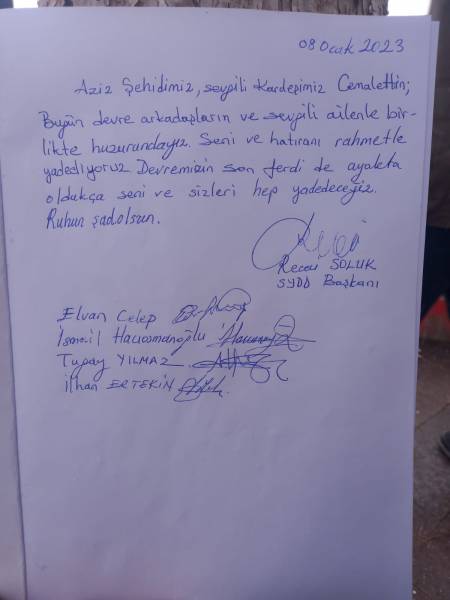 08 Ocak 2023
Aziz Şehidimiz, sevgili Kardeşimiz Cemalettin;
Bugün devre arkadaşların ve sevgili ailenle bir-
likte huzurundayız. Seni ve hatıranı rahmetle
yadediyoruz Devremizin son ferdi de ayakta
oldukça seni ve sizleri hep yadedeceğiz.
Ruhun şadolsun.
Recai SOLUK
SYDD Başkanı
Elvan Celep
İsmail Hacıosmanoğlu
Tugay YILMAZ
İlhan ERTEKİN